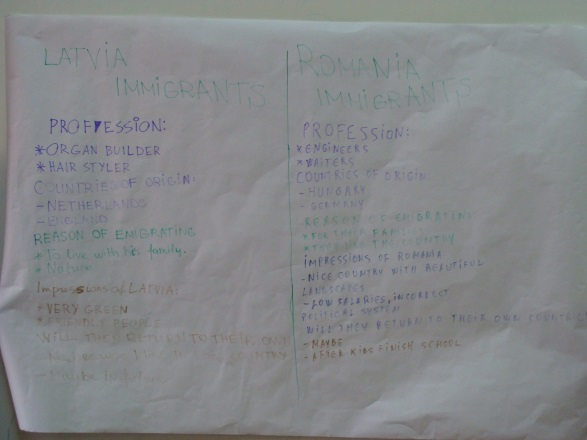 LATVIA
IMMIGRANTS
PROFFESSION:
*ORGAN BUILDER
*HAIR STYLER
COUNTRIES OF ORIGIN:
-NETHERLANDS
-ENGLAND
REASON OF EMIGRATING
*To live with his family.
*Nature
Impressions of LATVIA:
*VERY GREEN
*FRIENDLY PEOPLE
WILL THEY RETURN TO THEIR OWN
-Maybe
ROMANIA
IMMIGRANTS
PROFESSION:
*ENGINEERS
*WAITERS
COUNTRIES OF ORIGIN
-HUNGARY
-GERMANY
REASON OF EMIGRATING
*FOR THEIR FAMILIES
THE COUNTRY
IMPRESSIONS OF ROMANIA
-NICE COUNTRY WITH BEAUTIFUL
LANDSCAPES
-LOW SALARIES, INCORRECT
POLITICAL SYSTEM
WILL THEY RETURN TO THEIR OWN COUNTRIES
-MAYBE
-AFTER KIDS FINISH SCHOOL